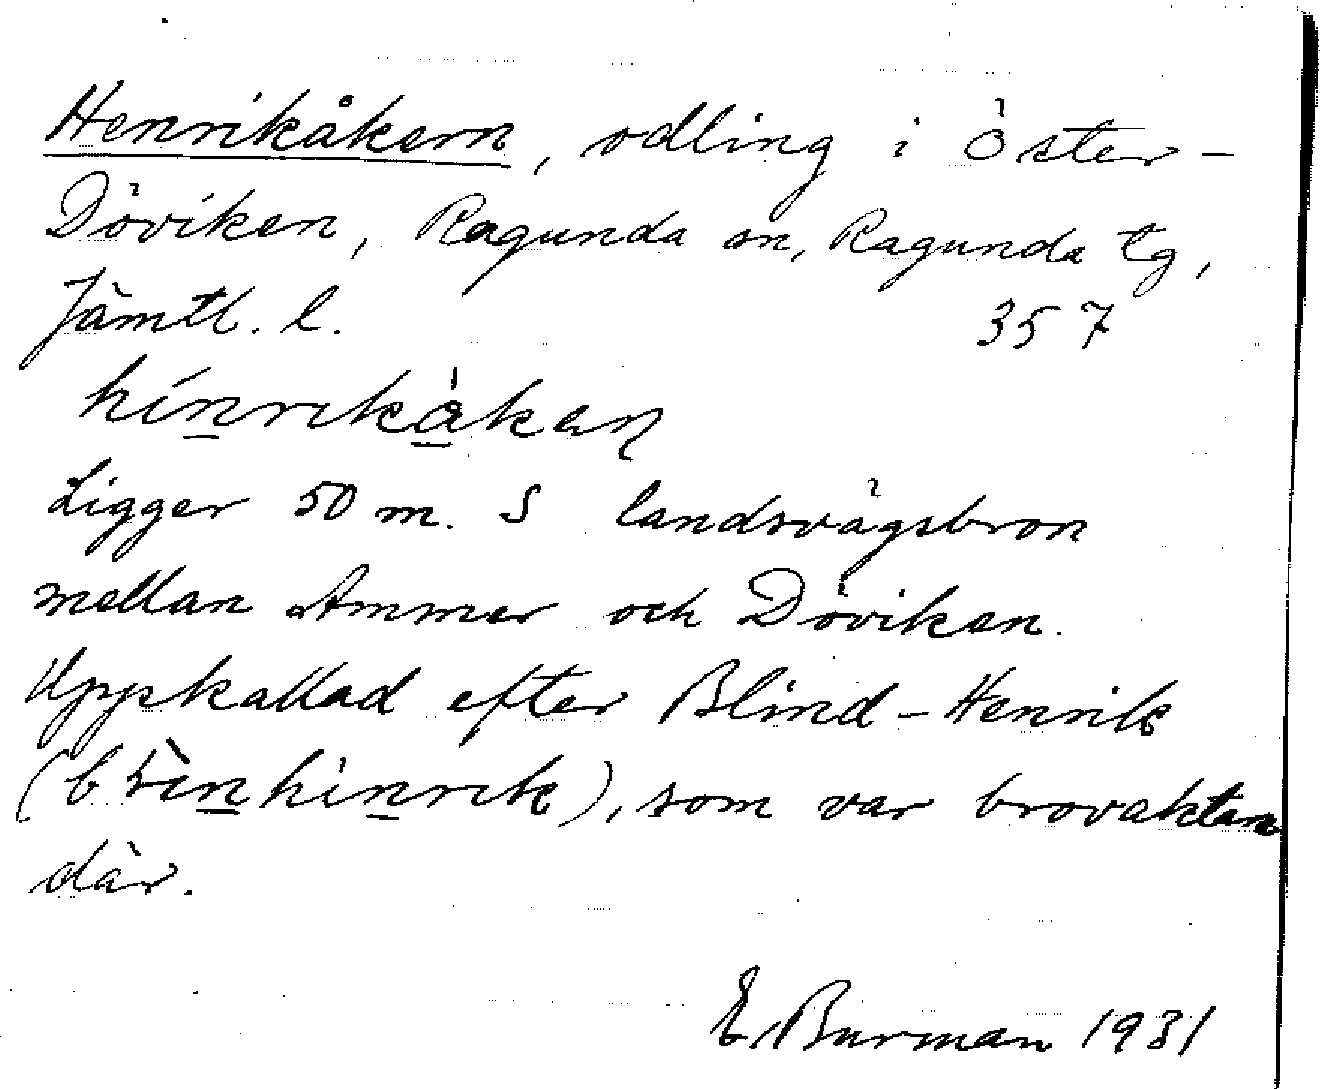 Henrikåkern, odling i Öster-
Döviken, Ragunda sn, Ragunda tg,
Jämtl. l. 357
hínrikåkəɳ
Ligger 50 m. S landsvägsbron
mellan Ammer och Döviken.
Uppskallad efter Blind-Henrik
(blinhinrik), som var brovaktare
där.
E. Burman 1931